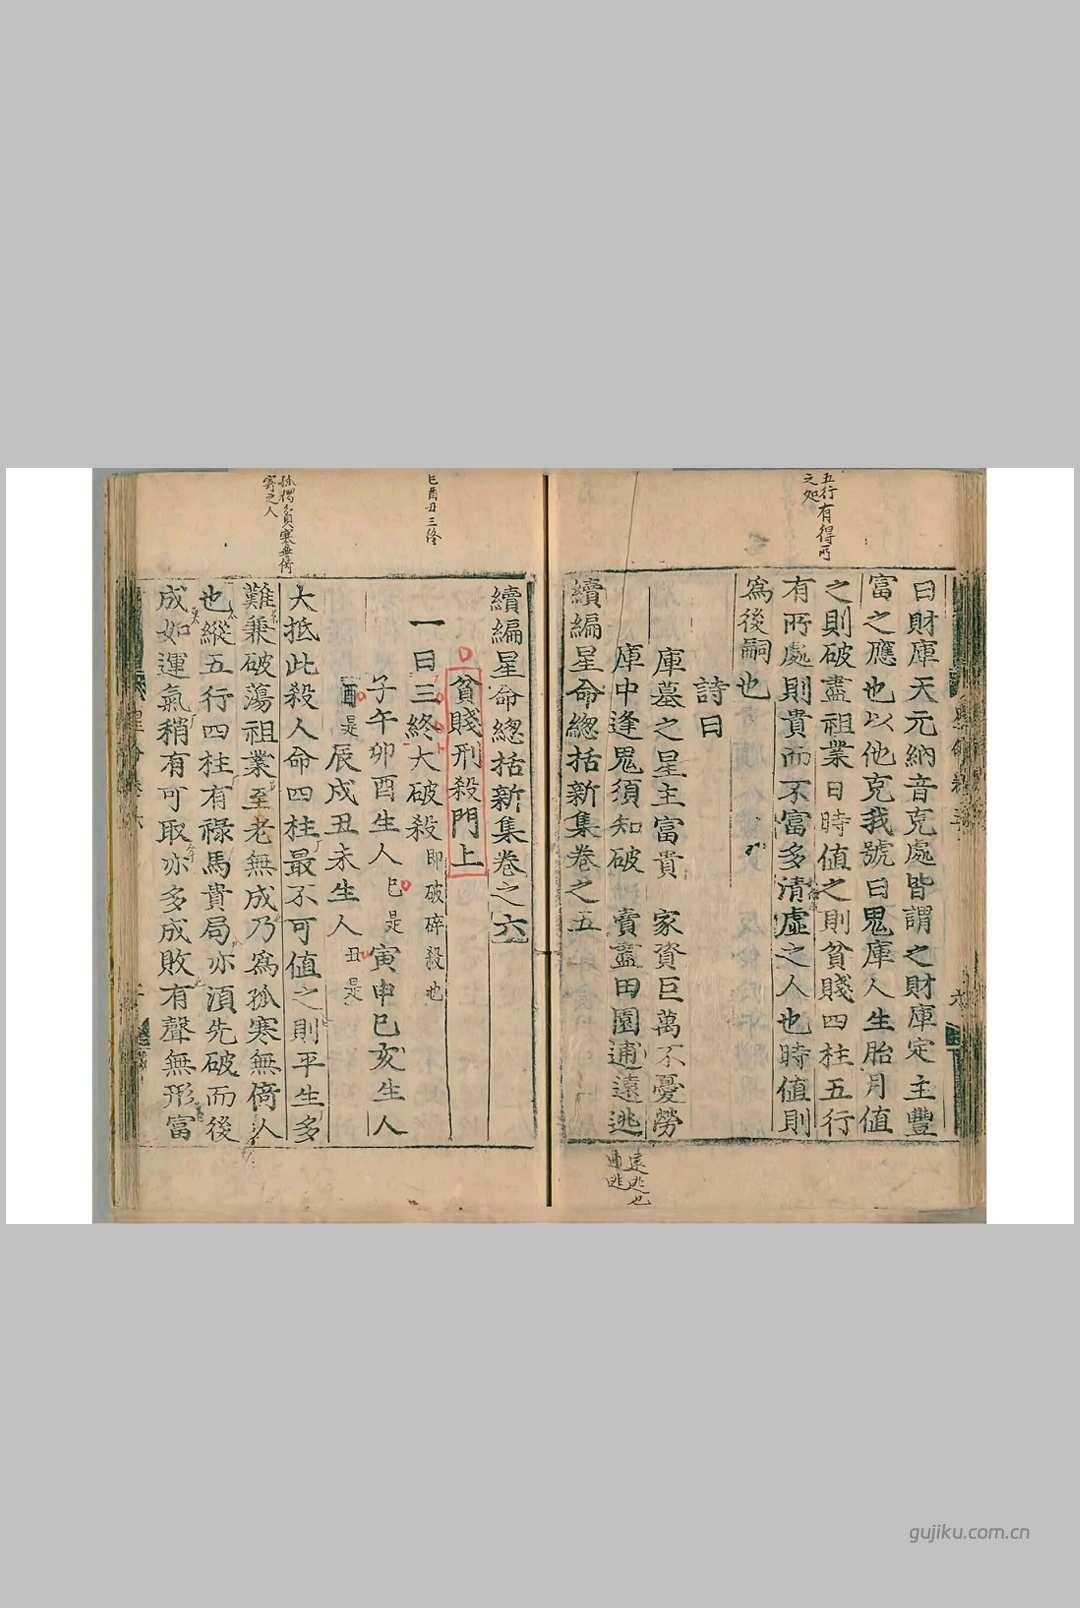 五行有得所
之処
曰財庫天元納音克處皆謂之財庫定主豐
富之應也以他克我號曰鬼庫人生胎月值
之則破盡祖業日時值之則貧賤四柱五行
有所處則貴而不富多清虛之人也時值則
爲後嗣也
詩曰
庫墓之星主富貴 家資巨萬不憂勞
庫中逢鬼須知破 賣盡田園逋遠逃
遠逃也
逋逃
續編星命總括新集卷之五
續編星命總括新集卷之六
貧賤刑殺門上
巳酉丑三終
一曰三終大破殺 即破碎殺也
子午卯酉生人 巳是 寅申巳亥生人
酉是 辰戌丑未生人 丑是
孤獨貧寒無倚
寡之人
大抵此殺人命四柱最不可值之則平生多
難兼破蕩祖業至老無成乃爲孤寒無倚人
也縱五行四柱有祿馬貴局亦須先破而後
成如運氣稍有可取亦多成敗有聲無形富
gujiku.com.cn